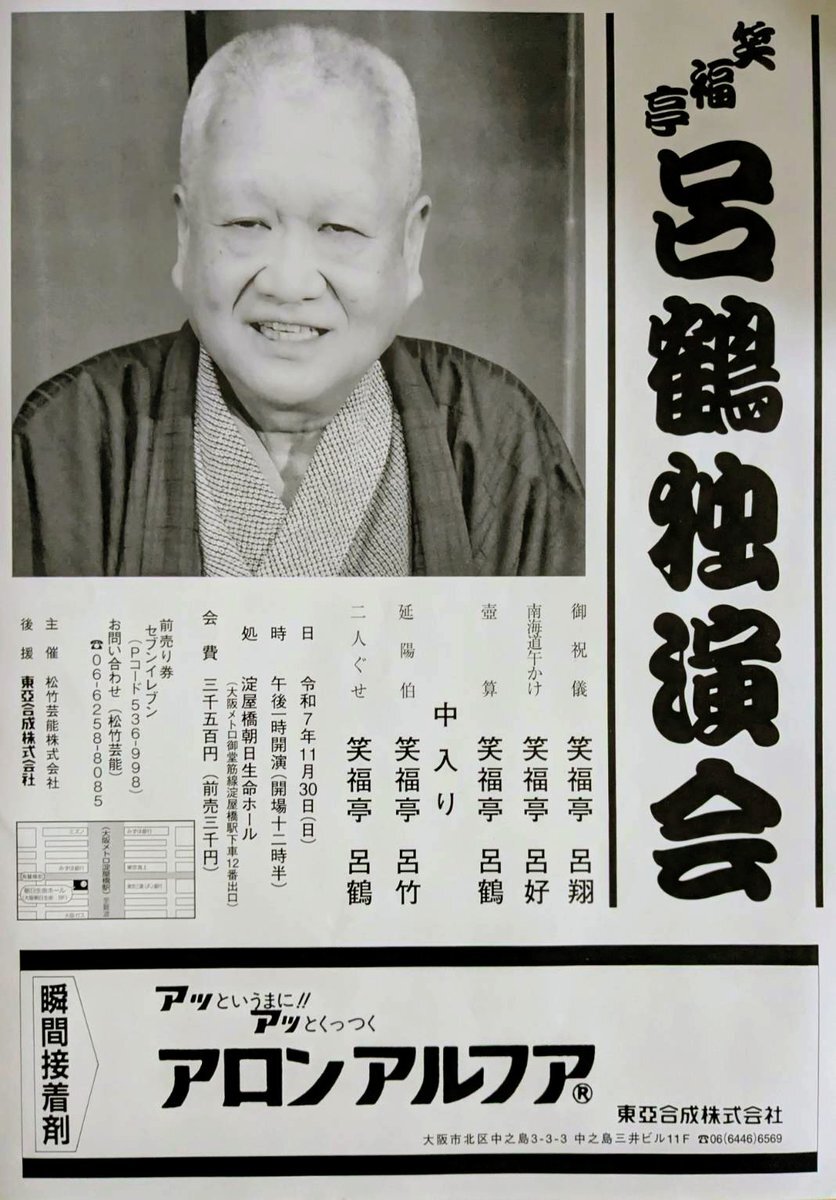 笑福亭
呂鶴独演会
御祝儀 笑福亭 呂翔
南海道午かけ 笑福亭 呂好
壺算 笑福亭 呂鶴
中入り
延陽伯 笑福亭 呂竹
二人ぐせ 笑福亭 呂鶴
日 令和7年11月30日(日)
時 午後一時開演(開場十二時半)
処 淀屋橋朝日生命ホール
(大阪メトロ御堂筋線淀屋橋駅下車12番出口)
会費 三千五百円(前売三千円)
前売り券
セブンイレブン
(Pコード536-998)
お問い合わせ(松竹芸能)
☎06-6258-8085
主催 松竹芸能株式会社
後援 東亞合成株式会社
ミズノ
みずほ銀行
(大阪メトロ淀屋橋駅)
朝日生命ホール
大阪ガス
瞬間接着剤
アッというまに!!
アッとくっつく
アロンアルフア®
東亞合成株式会社
大阪市北区中之島3-3-3 中之島三井ビル11F ☎06(6446)6569